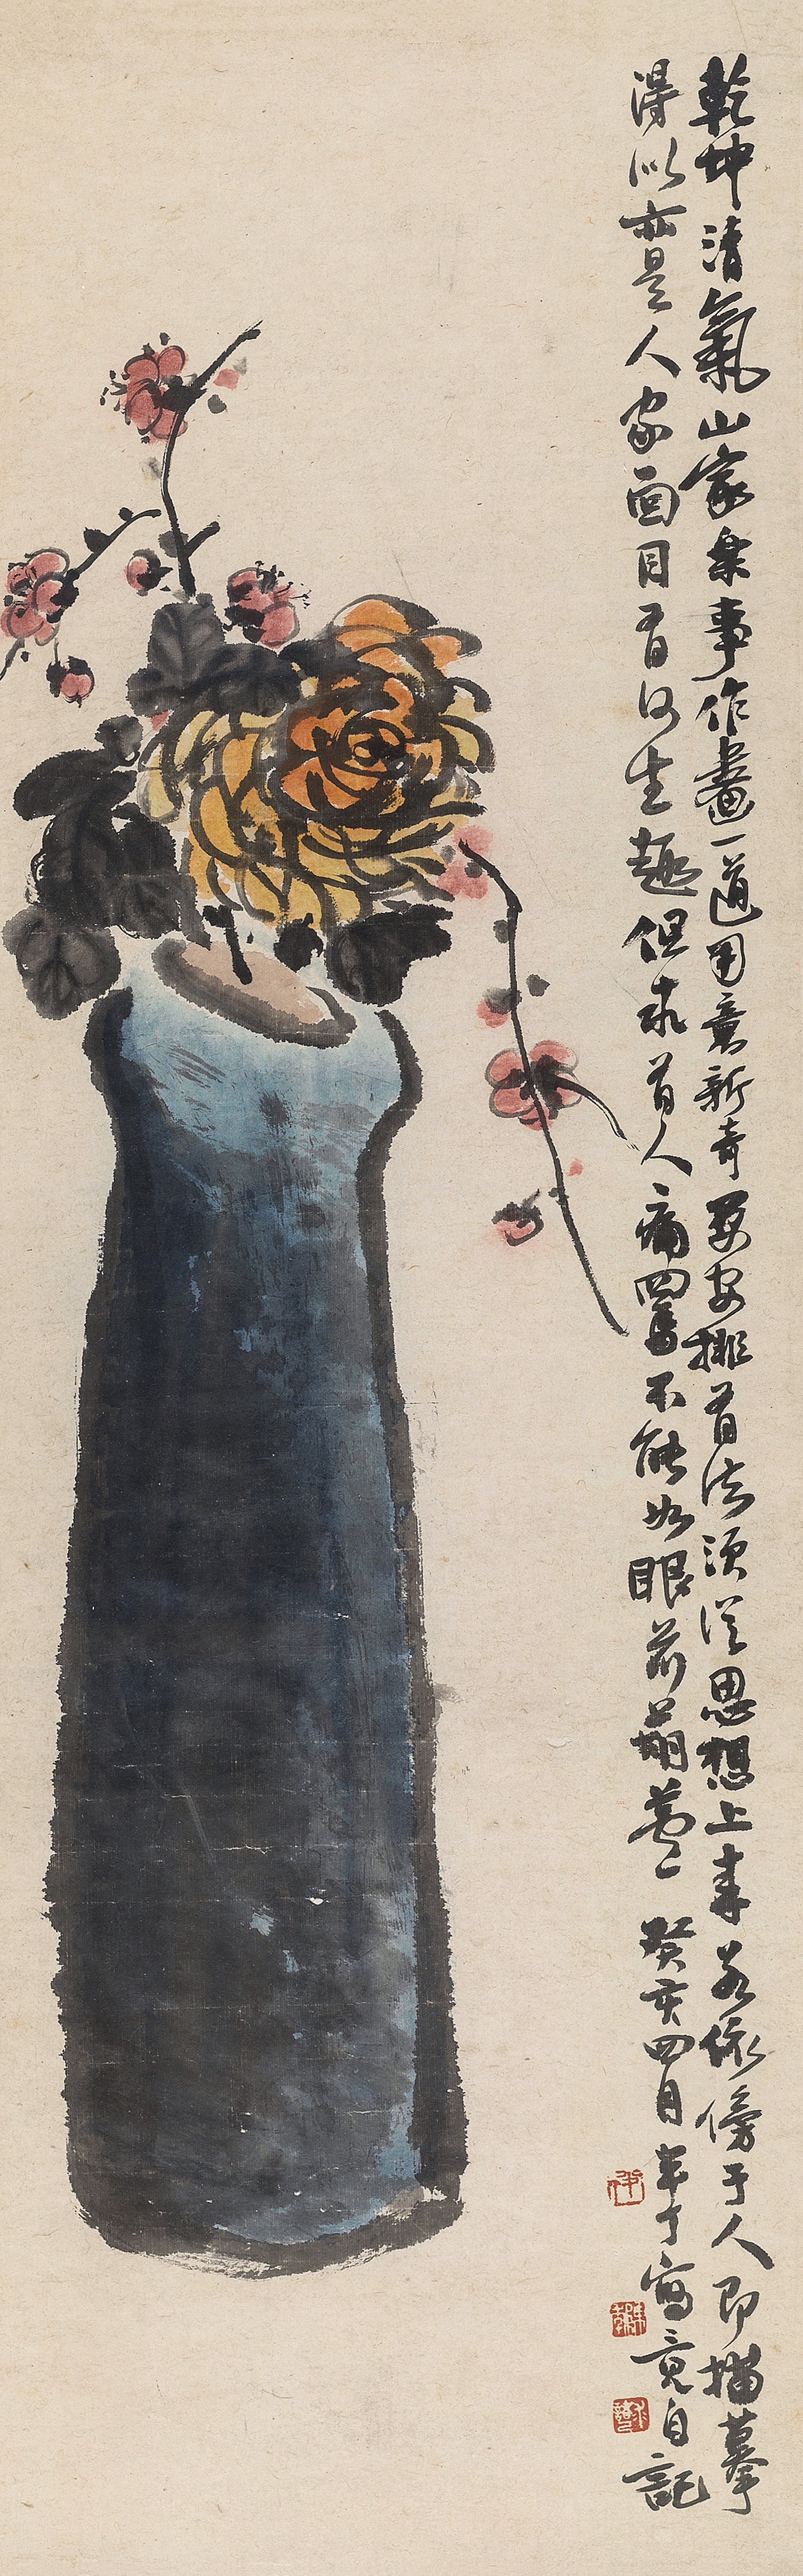 乾坤清氣山家樂事作畫一道用意新奇要安排有法須從思想上來若依傍于人即描摹
得似亦是人家面目有何生趣但求有人痛罵不能如眼前葫蘆 癸亥四月半丁寫竟自記